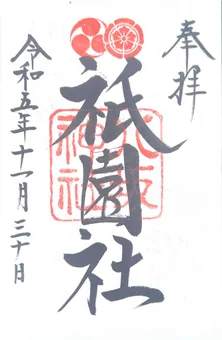 奉拝
祇園社
八坂神社
令和五年十一月三十日